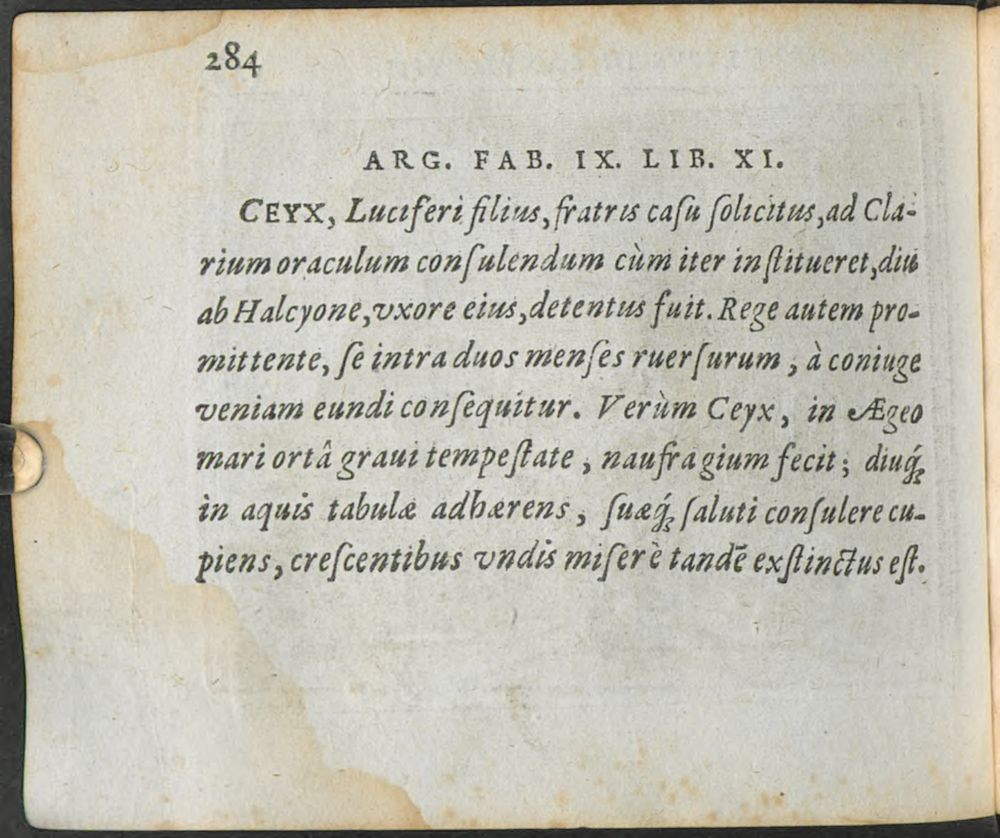 284
ARG. FAB. IX. LIB. XI.
CEYX, Luciferi filius, fratris caſu ſolicitus, ad Cla-
rium oraculum conſulendum cùm iter inſtitueret, diu
ab Halcyone, vxore eius, detentus fuit. Rege autem pro-
mittente, ſe intra duos menſes ruerſurum, à coniuge
veniam eundi conſequitur. Verùm Ceyx, in Ægeo
mari ortâ graui tempeſtate, naufragium fecit; diuq́ꝫ
in aquis tabulæ adhærens, ſuæq́ꝫ ſaluti conſulere cu-
piens, creſcentibus vndis miſerè tandē exſtinctus eſt.